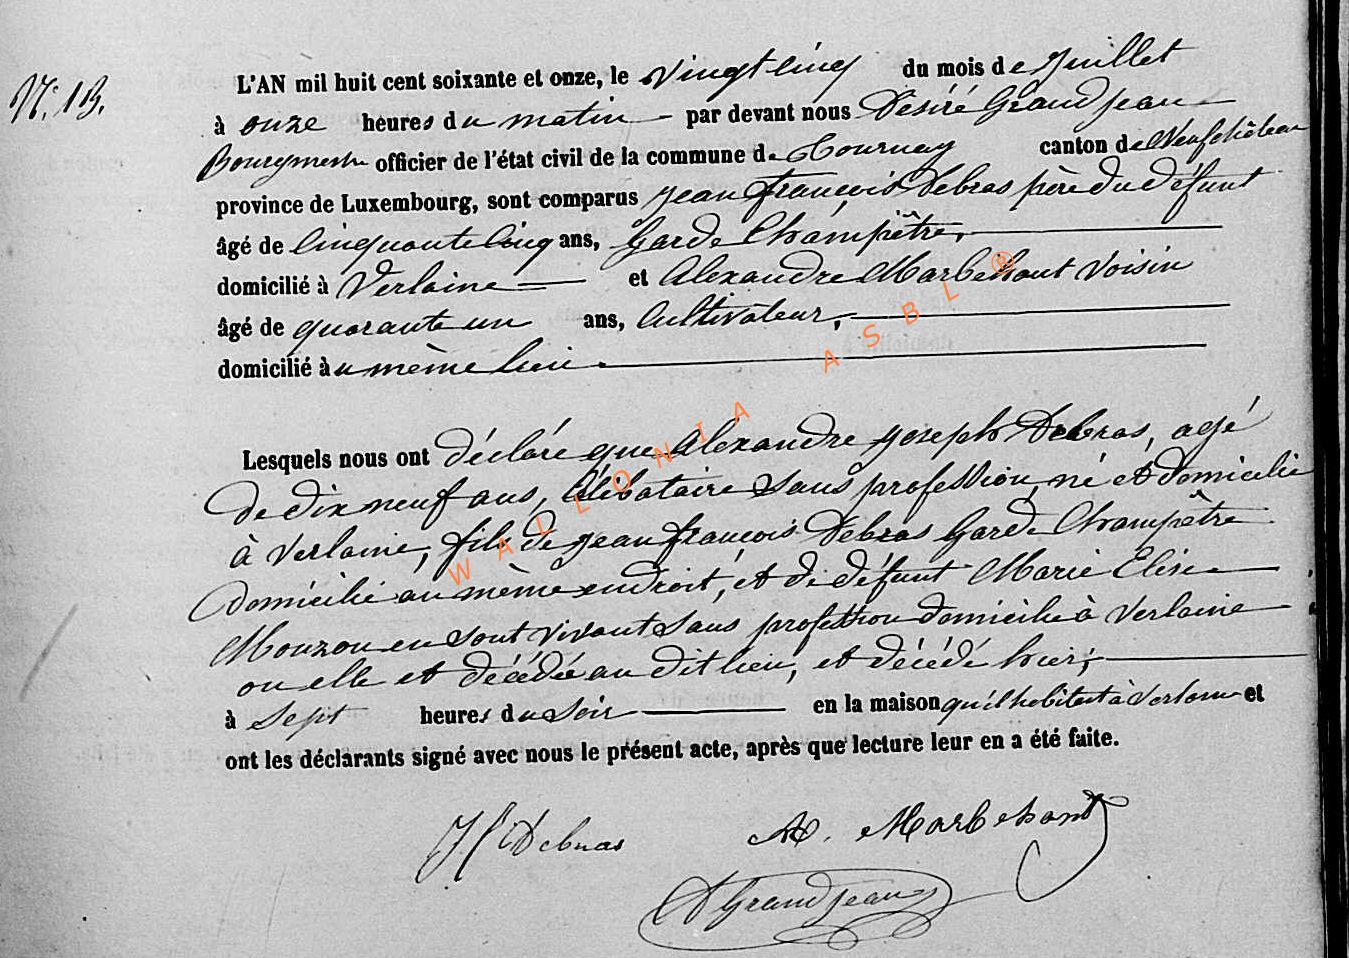 N: 13.
L'AN mil huit cent soixante et onze, le vingt cinq du mois de Juillet
à onze heures du matin par devant nous Désiré Grandjean
Bourgmestre officier de l'état civil de la commune de Tournay canton de Neufchâteau
province de Luxembourg, sont comparus Jean François Debras père du défunt
âgé de Cinquante Cinq ans, Garde Champêtre,
domicilié à Verlaine et Alexandre Marbehant Voisin
âgé de quarante un ans, Cultivateur,
domicilié au même lieu
Lesquels nous ont déclaré que Alexandre Joseph Debras, agé
de dix neuf ans, Célibataire Sans profession, né et domicilié
à Verlaine, fils de Jean François Debras Garde Champêtre
domicilié au même endroit, et de défunt Marie Elise
Mouzon en Sont vivant Sans profession domicilié à Verlaine
ou elle et décédée au dit lieu, et décédé hier,
à Sept heures du Soir en la maison qu'il habitait à Verlaine et
ont les déclarants signé avec nous le présent acte, après que lecture leur en a été faite.
Jf Debras A. Marbehant
D Grandjean
WALLONIA ASBL ®